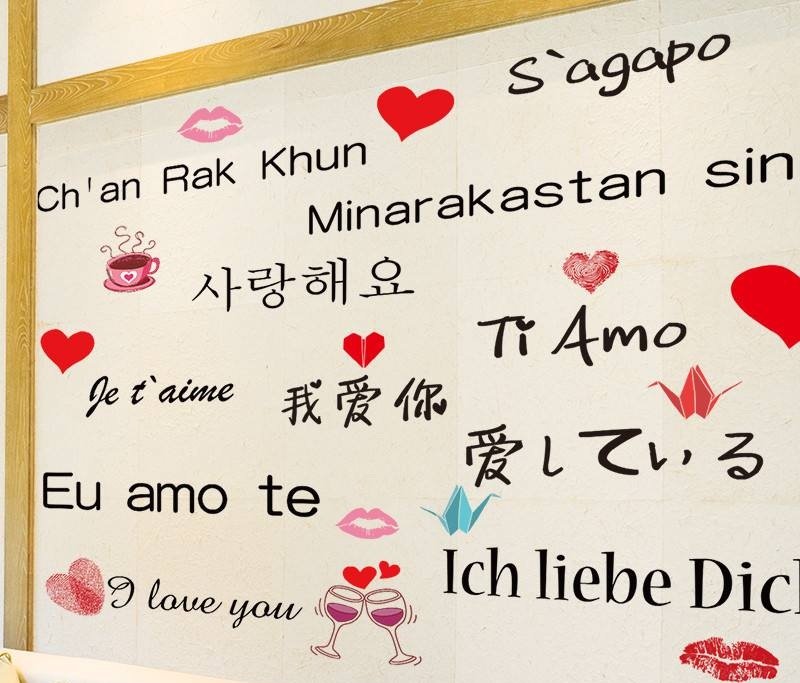 S`agapo
Ch'an Rak Khun
Minarakastan sin
사랑해요
Ti Amo
Je t`aime
我爱你
愛している
Eu amo te
Ich liebe Dich
I love you